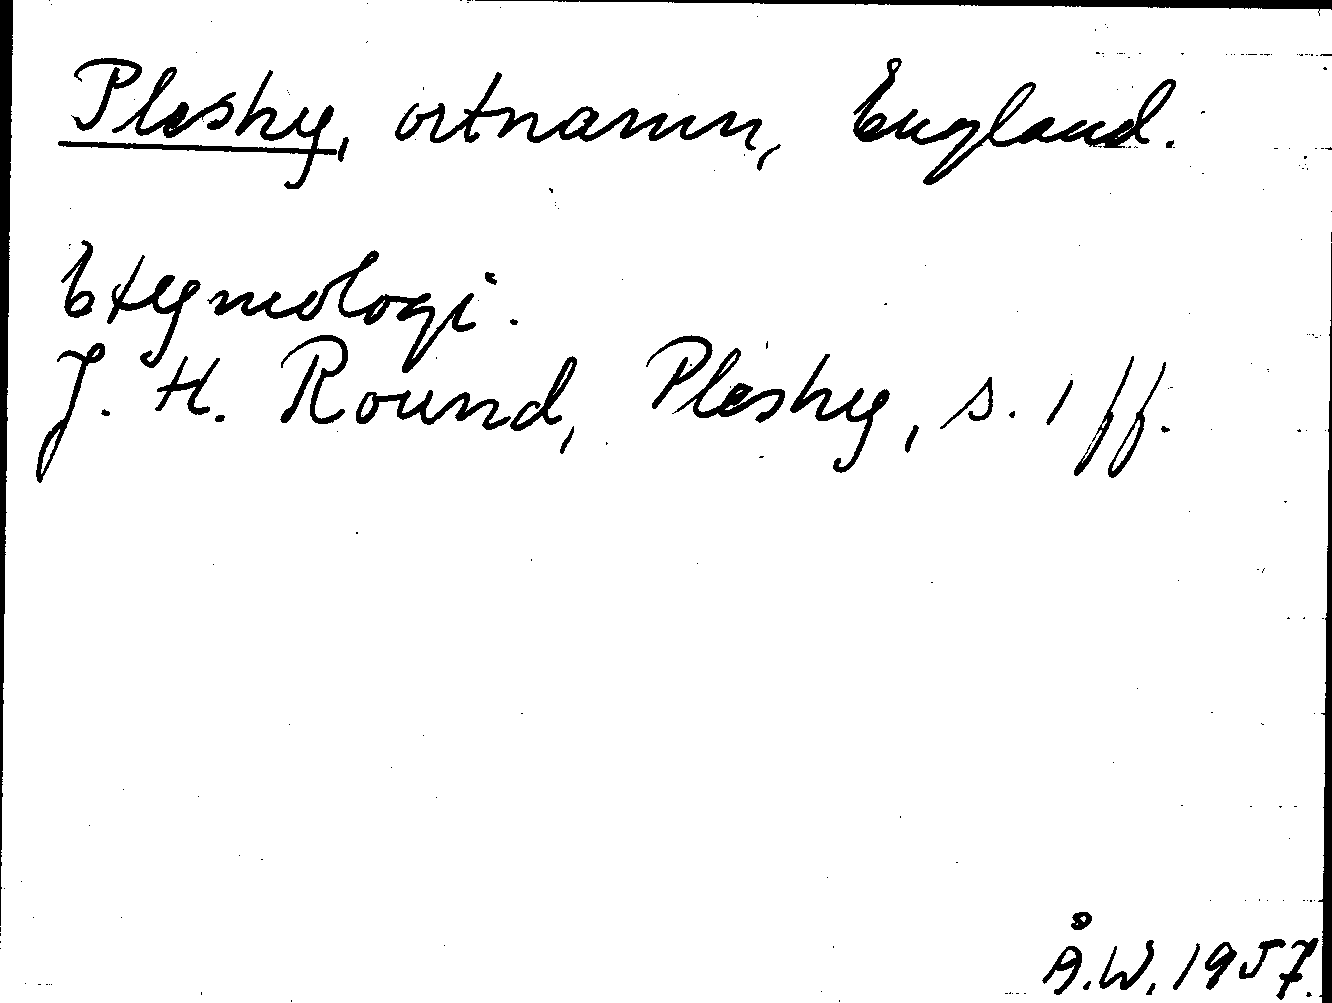 Pleshey, ortnamn, England.
Etymologi.
J. H. Round, Pleshey, s. 1 ff.
Å.W. 1957.